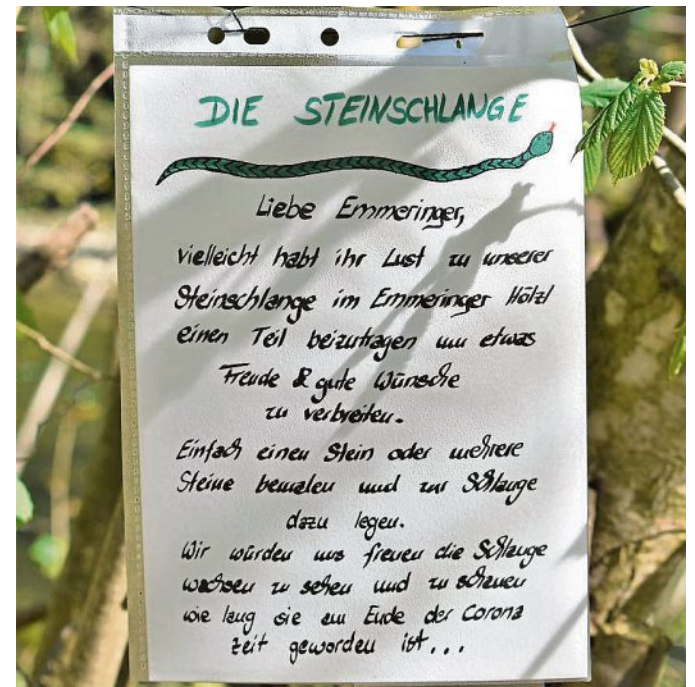 DIE STEINSCHLANGE
Liebe Emmeringer,
vielleicht habt ihr Lust zu unserer
Steinschlange im Emmeringer Hölzl
einen Teil beizutragen um etwas
Freude & gute Wünsche
zu verbreiten.
Einfach einen Stein oder mehrere
Steine bemalen und zur Schlange
dazu legen.
Wir würden uns freuen die Schlange
wachsen zu sehen und zu schauen
wie lang sie am Ende der Corona
zeit geworden ist...